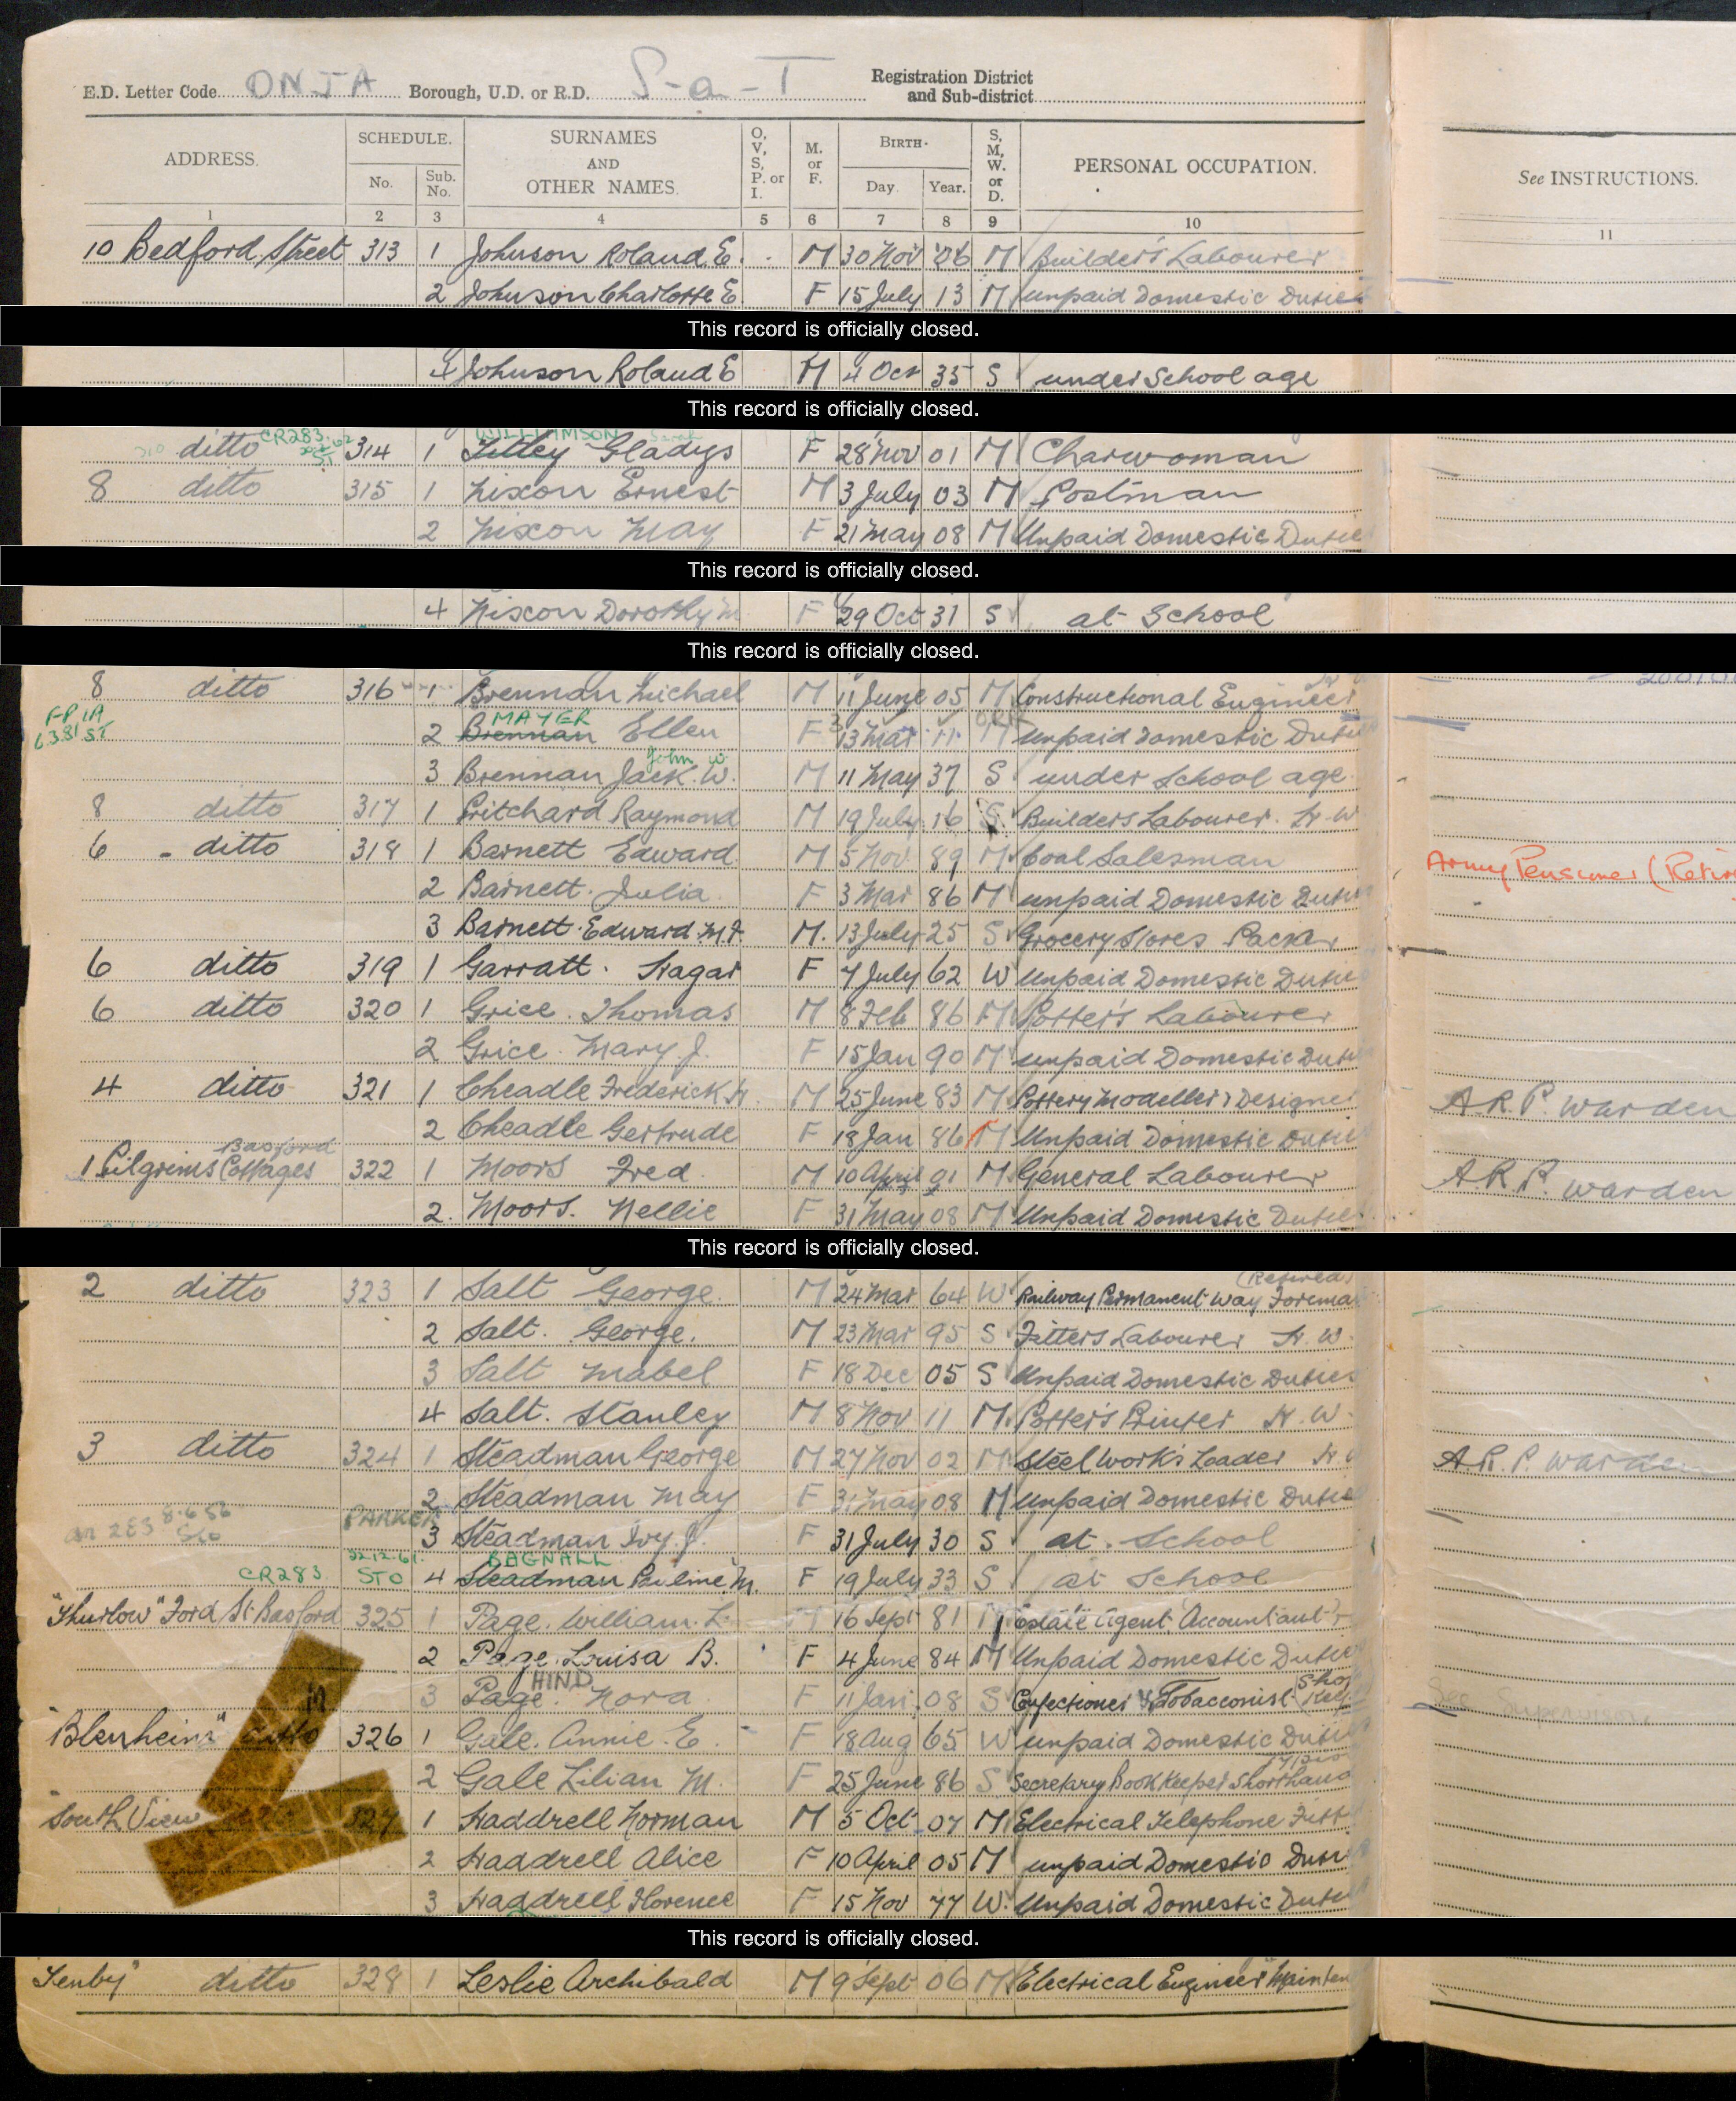 E.D. Letter Code ONJA Borough, U.D. or R.D. S-a-T Registration District and Sub-district
ADDRESS. SCHEDULE. No. Sub. No. SURNAMES AND OTHER NAMES. O, V, S, P. or I. M. or F. BIRTH. Day. Year. S, M, W. or D. PERSONAL OCCUPATION. See INSTRUCTIONS.
1 2 3 4 5 6 7 8 9 10 11
10 Bedford Street 313 1 Johnson Roland E. M 30 Nov 06 M Builder's Labourer
2 Johnson Charlotte E. F 15 July 13 M unpaid Domestic Duties
This record is officially closed.
4 Johnson Roland E M 4 Oct 35 S under School age
This record is officially closed.
CR283 WILLIAMSON Sarah
ditto 314 1 Titley Gladys F 28 Nov 01 M Charwoman
8 ditto 315 1 Nixon Ernest M 3 July 03 M Postman
2 Nixon May F 21 May 08 M Unpaid Domestic Dutie
This record is officially closed.
4 Nixon Dorothy M F 29 Oct 31 S at School
This record is officially closed.
8 ditto 316 1 Brennan Michael M 11 June 05 M Constructional Engineer
FP 1A 6381 ST MAYER
2 Brennan Ellen F 13 Mar 11 M unpaid Domestic Duti
John W
3 Brennan Jack. W. M 11 May 37 S under School age
8 ditto 317 1 Pritchard Raymond M 19 July 16 S Builders Labourer. H.W
6 - ditto 318 1 Barnett Edward M 5 Nov 89 M Coal Salesman Army Pensioner (Retir
2 Barnett. Julia F 3 Mar 86 M unpaid Domestic Duti
3 Barnett. Edward M.J. M. 13 July 25 S Grocery Stores Packer
6 ditto 319 1 Garratt. Hagar F 7 July 62 W Unpaid Domestic Dutie
6 ditto 320 1 Grice. Thomas M 8 Feb 86 M Potter's Labourer
2 Grice. Mary J. F 15 Jan 90 M unpaid Domestic Duti
4 ditto 321 1 Cheadle Frederick H. M 25 June 83 M Pottery Modeller & Designer A.R.P. Warden
2 Cheadle Gertrude F 18 Jan 86 M Unpaid Domestic Dutie
Basford
1 Pilgrims Cottages 322 1 Moors Fred M 10 April 91 M General Labourer A.R.P. Warden
2. Moors. Nellie F 31 May 08 M Unpaid Domestic Duties
This record is officially closed.
(Retired)
2 ditto 323 1 Salt George. M 24 Mar 64 W Railway Permanent Way Foreman
2 Salt. George. M 23 Mar 95 S Fitters Labourer H.W.
3 Salt Mabel F 18 Dec 05 S Unpaid Domestic Duties
4 Salt. Stanley M 8 Nov 11 M. Potter's Printer H.W.
3 ditto 324 1 Steadman George M 27 Nov 02 M Steel Work's Loader H.W A.R.P. Warden
2 Steadman May F 31 May 08 M Unpaid Domestic Dutie
8.6.56 PARKER
3 Steadman Ivy J. F 31 July 30 S at School
22.12.61. BAGNALL
CR283 STO 4 Steadman Pauline M. F 19 July 33 S at School
"Thurlow" Ford St Basford 325 1 Page. William. L. M 16 Sept 81 M Estate Agent, Accountant
2 Page. Louisa B. F 4 June 84 M Unpaid Domestic Dutie
HIND
3 Page. Nora F 11 Jan. 08 S Confectioner & Tobacconist Shop
"Blenheim" ditto 326 1 Gale. Annie. E. F 18 Aug 65 W unpaid Domestic Duti
2 Gale Lilian M. F 25 June 86 S Secretary Book Keeper Shorthand Typis
South View 327 1 Haddrell Norman M 5 Oct 07 M Electrical Telephone Fitt
2 Haddrell Alice F 10 April 05 M unpaid Domestic Duti
3 Haddrell Florence F 15 Nov 77 W. Unpaid Domestic Duti
This record is officially closed.
"Tenby" ditto 328 1 Leslie Archibald M 9 Sept 06 M Electrical Engineer Mainten